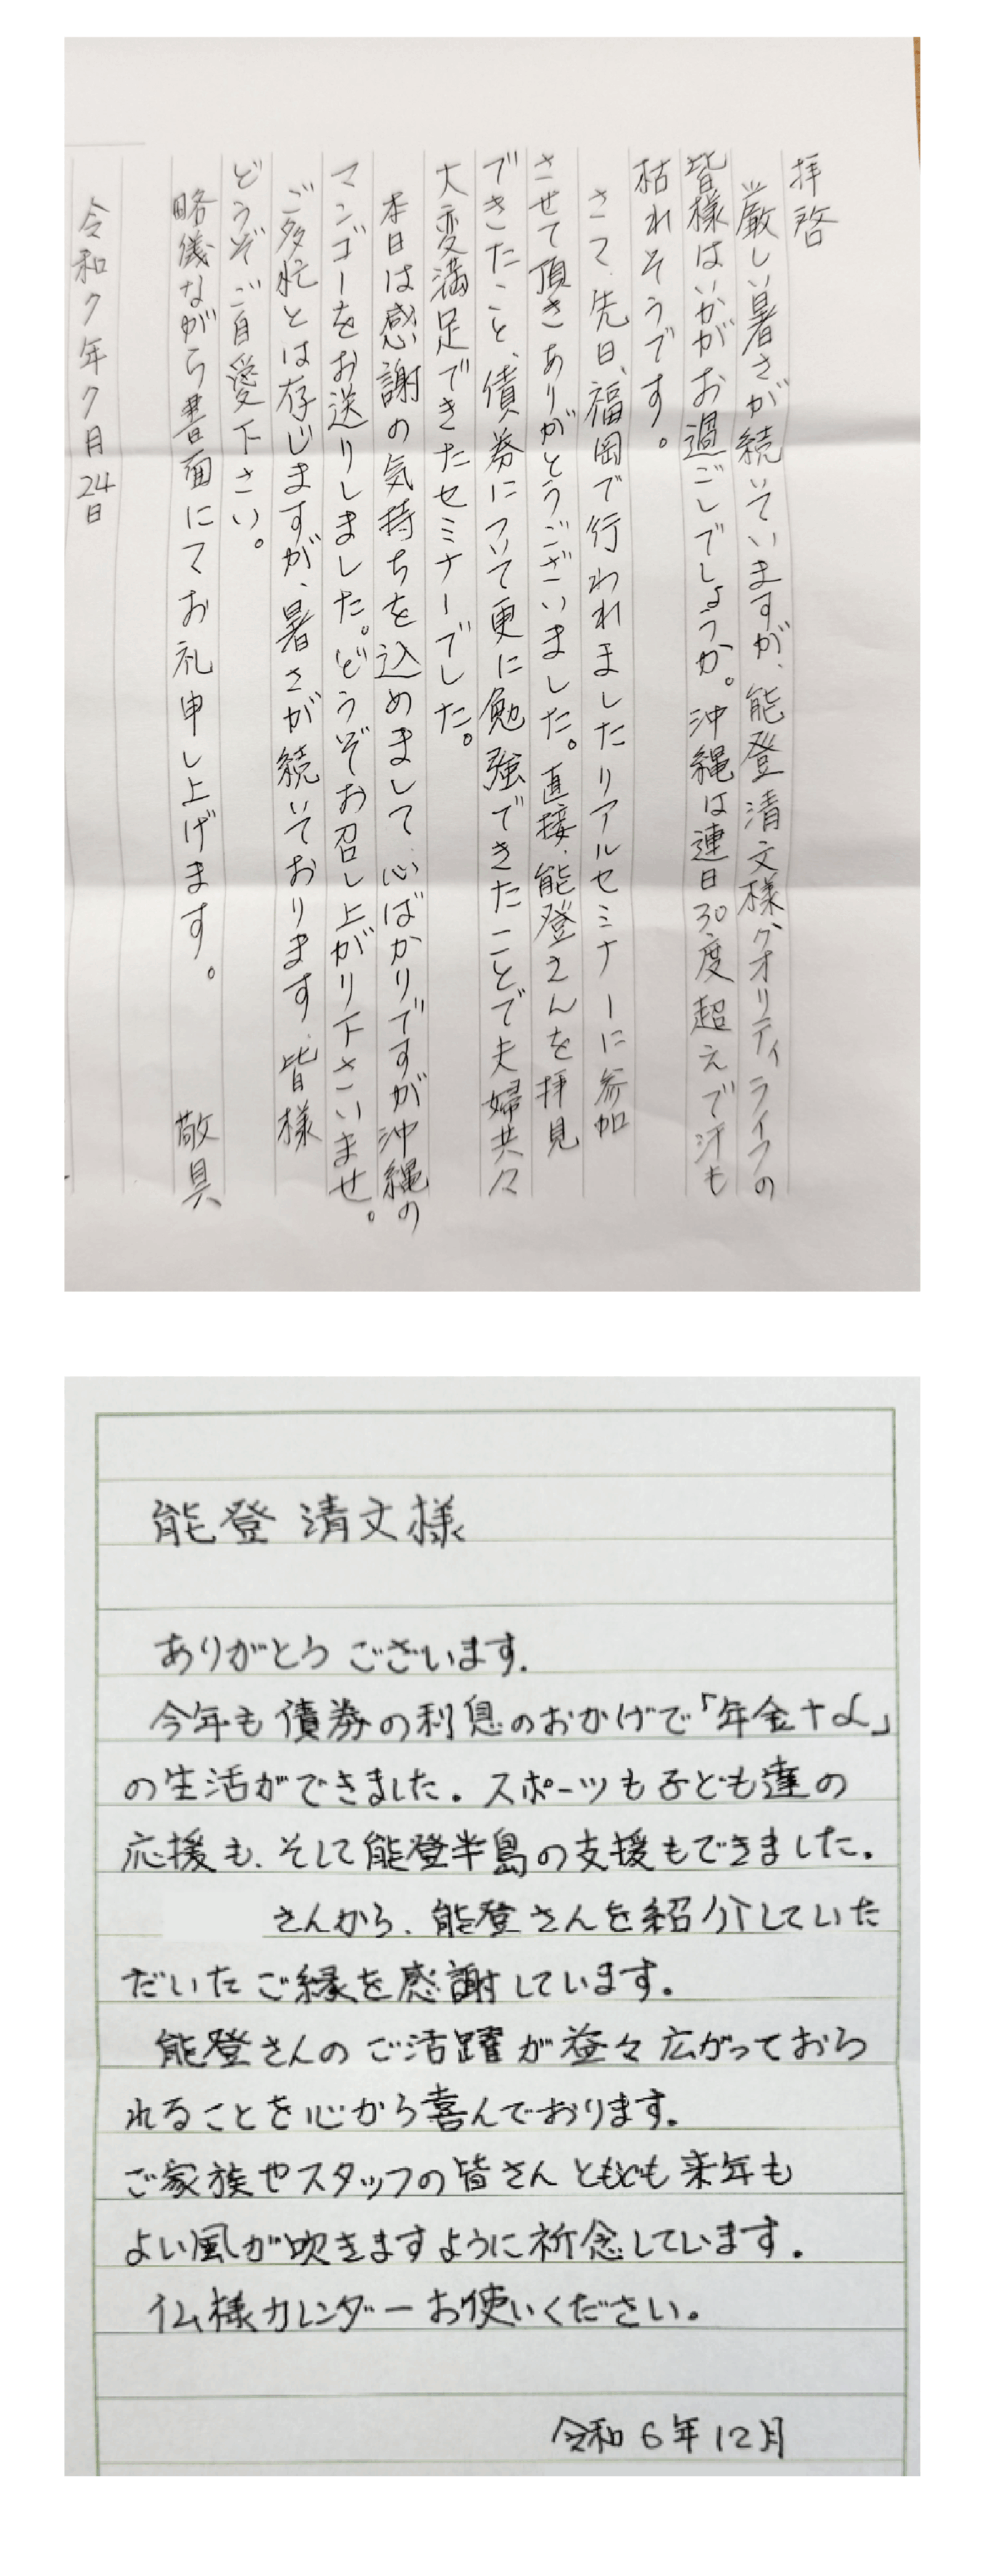 拝啓
厳しい暑さが続いていますが、能登清文様、クオリティライフの
皆様はいかがお過ごしでしょうか。沖縄は連日30度超えで汗も
枯れそうです。
さて、先日、福岡で行われましたリアルセミナーに参加
させて頂きありがとうございました。直接、能登さんを拝見
できたこと、債券について更に勉強できたことで夫婦共々
大変満足できたセミナーでした。
本日は感謝の気持ちを込めまして、心ばかりですが沖縄の
マンゴーをお送りしました。どうぞお召し上がり下さいませ。
ご多忙とは存じますが、暑さが続いております、皆様
どうぞご自愛下さい。
略儀ながら書面にてお礼申し上げます。 敬具
令和7年7月24日
能登 清文様
ありがとうございます.
今年も債券の利息のおかげで「年金+α」
の生活ができました。スポーツも子ども達の
応援も、そして能登半島の支援もできました。
さんから、能登さんを紹介していた
だいたご縁を感謝しています。
能登さんのご活躍が益々広がっておら
れることを心から喜んでおります。
ご家族やスタッフの皆さんともども来年も
よい風が吹きますように祈念しています。
仏様カレンダーお使いください。
令和6年12月